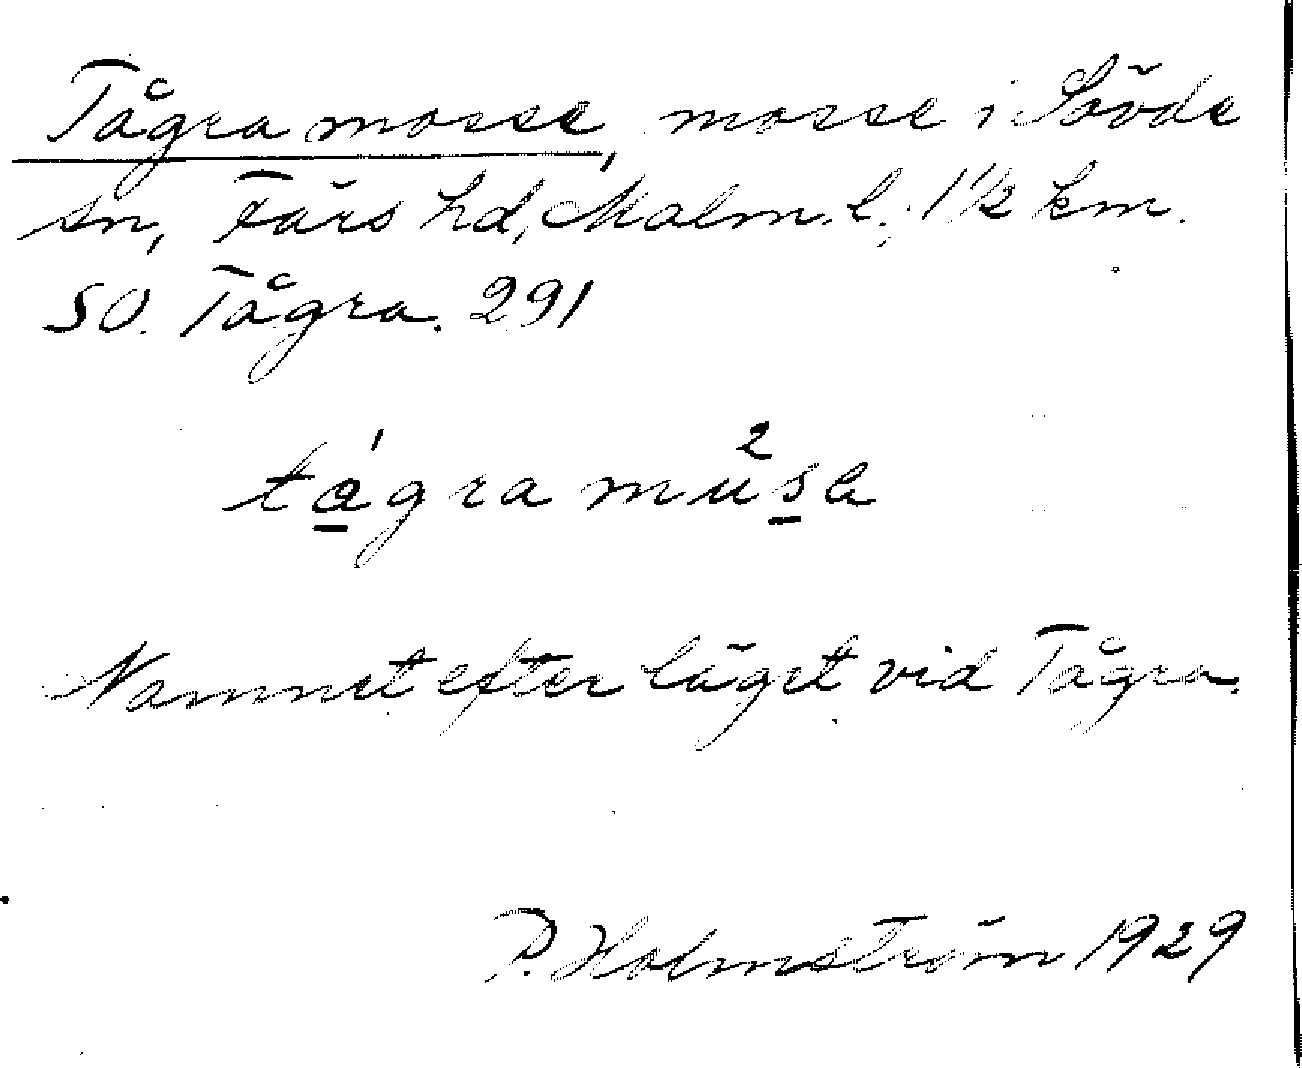 Tågra mosse, mosse i Sövde
sn, Färs hd, Malm. l., 1½ km.
SO. Tågra. 291
tá̱gra mu²s̱a
Namnet efter läget vid Tågra.
P. Holmström 1929